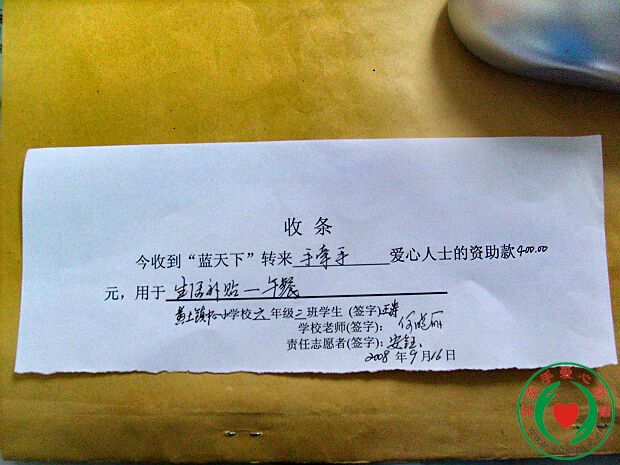 收 条
今收到“蓝天下”转来 手牵手 爱心人士的资助款400.00
元，用于 生活补贴—午餐
黄土镇 小学校六年级二班学生（签字）
学校老师(签字)： 何晓丽
责任志愿者(签字)：安钰
2008 年 9 月 16 日